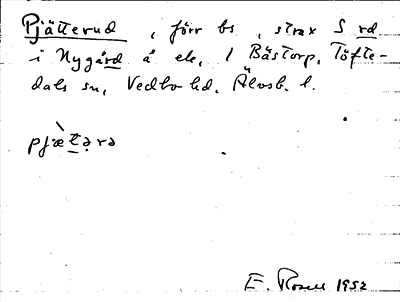 Pjätterud, förr bs, strax S rd
i Nygård å ek. 1 Båstorp, Töfte-
dals sn, Vedbo hd, Älvsb. l.
pjæ̀tərə
E. Rosell 1952